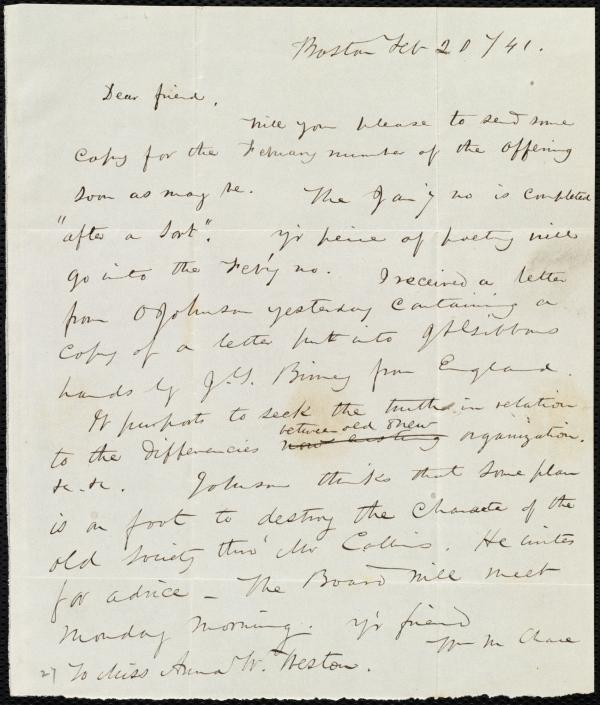 Boston Feb 20 /41.
Dear friend,
Will you please to send some
copy for the February number of the Offering
soon as may be. The Jan'y no is completed
"after a sort". Yr peice of poetry will
go into the Feb'y no. I received a letter
from O Johnson yesterday containing a
copy of a letter put into J S Gibbons
hands by J. G. Birney from England.
It purports to seek the truth in relation
to the differencies between old & new
now existing organization.
&c. &c. Johnson thinks that some plan
is on foot to destroy the character of the
old Society thro' Mr Collins. He writes
for advice – The Board will meet
Monday morning. Yr friend
Wm M Chace
27 To Miss Anna W. Weston.